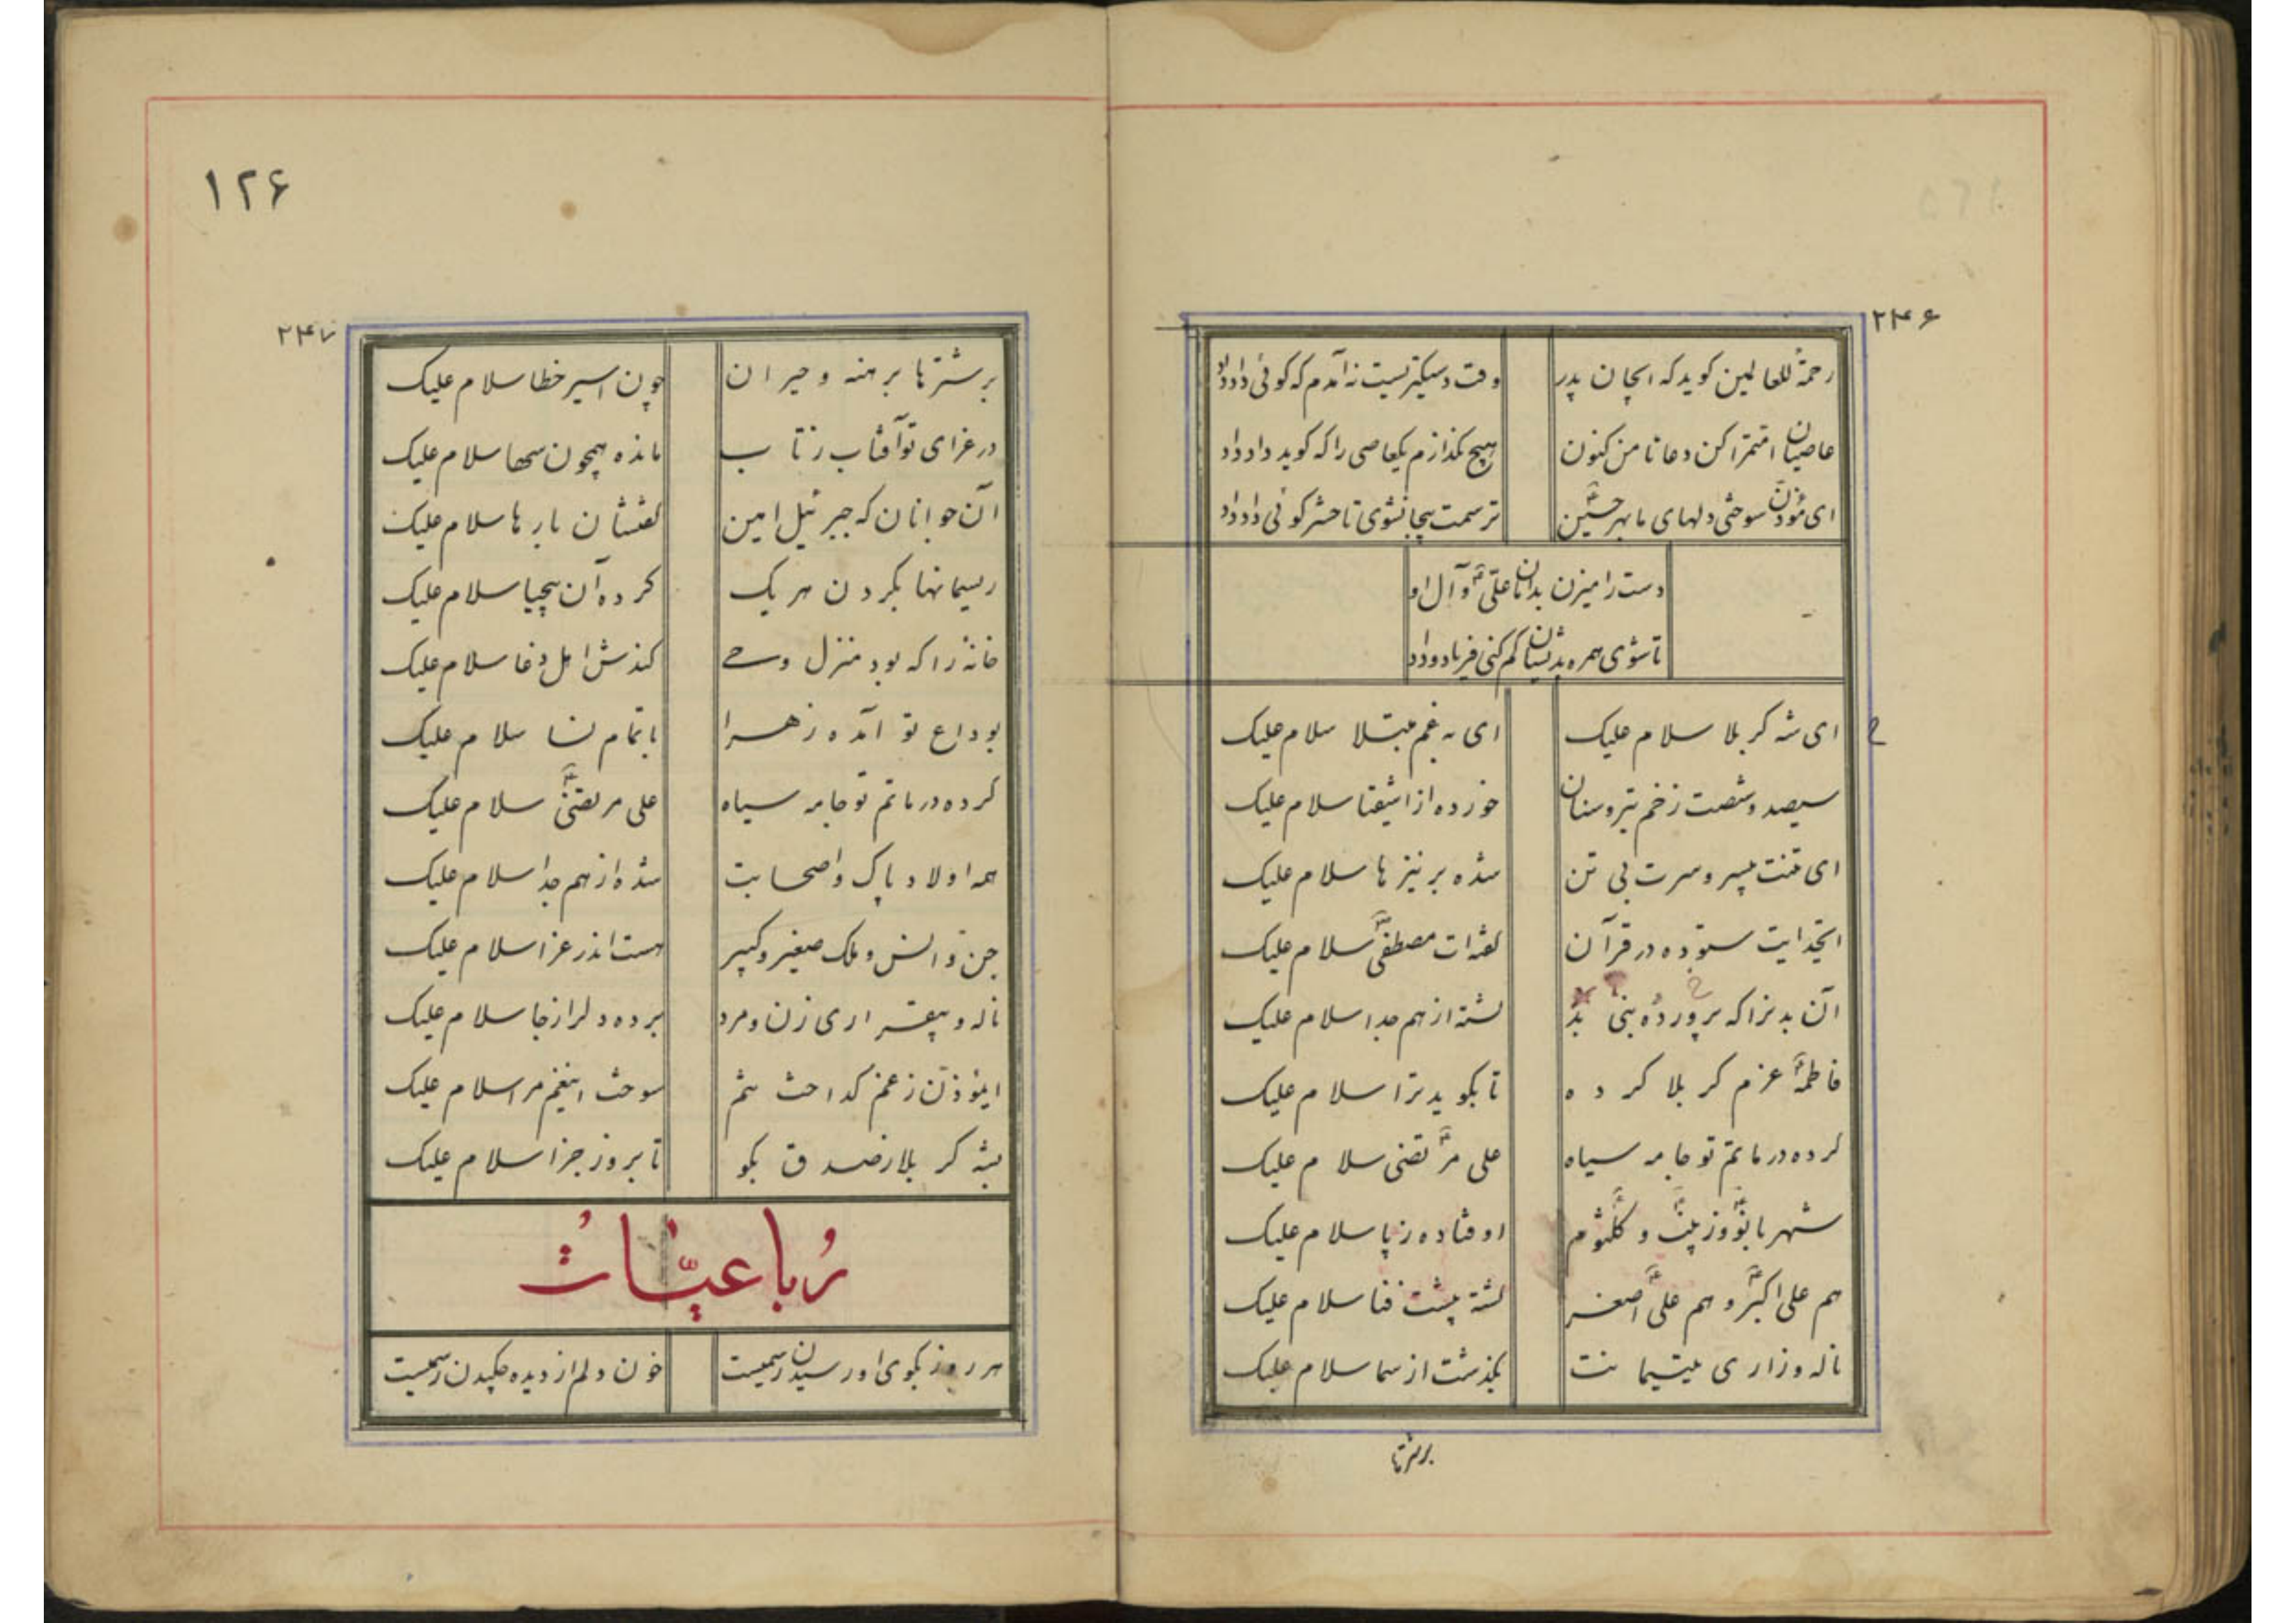 ۲۴۶
رحمة للعالمین کوید که ایجان پدر وقت دستکیریست نه آمدم که کوئی داد داد
عاصیان امتمرا کن دعا تا من کنون هیچ نگذارم یکعاصی را که کوید داد داد
ای مؤذن سوختی دلهای ما بهر حسین ترسمت بیجا نشوی تا حشر کوئی داد داد
دست را میزن بدامان علی و آل او
تا شوی همره بدیشان کم کنی فریاد و داد
ای شه کربلا سلام علیک ای به غم مبتلا سلام علیک
سیصد و شصت زخم تیر و سنان خورده از اشقیا سلام علیک
ای تنت بیسر و سرت بی تن شده بر نیزها سلام علیک
ایخدایت ستوده در قرآن لقد ات مصطفی سلام علیک
آن بدنرا که پرورده نبی بد کشته از هم جدا سلام علیک
فاطمه عزم کربلا کرده تا بکوید ترا سلام علیک
کرده در ماتم تو جامه سیاه علی مرتضی سلام علیک
شهربانو و زینب و کلثوم اوفتاده ز پا سلام علیک
هم علی اکبر و هم علی اصغر کشته پشت قفا سلام علیک
ناله و زاری یتیمانت بگذشت از سما سلام علیک
برشترها
۱۲۶
۲۴۷
برشترها برهنه و حیران چون اسیر خطا سلام علیک
در عزای تو آفتاب ز تاب مانده همچون سها سلام علیک
آن جوانان که جبرئیل امین گفتشان بارها سلام علیک
ریسمانها بگردن هر یک کرده آن بیحیا سلام علیک
خانهٔ را که بود منزل وحی کندش اهل دغا سلام علیک
بوداع تو آمده زهرا با تمام نسا سلام علیک
کرده در ماتم تو جامه سیاه علی مرتضی سلام علیک
همه اولاد پاک و اصحابت شده از هم جدا سلام علیک
جن و انس و ملک صغیر و کبیر هست اندر عزا سلام علیک
ناله و بیقراری زن و مرد برده دلرا ز جا سلام علیک
ایمؤذن ز غم کداخت تنم سوخت اینغم مرا سلام علیک
بشه کربلا ز صدق بکو تا بروز جزا سلام علیک
رُباعیّاتُ
هر روز بکوی او رسیدن رسمیست خون دلم از دیده چکیدن رسمیست